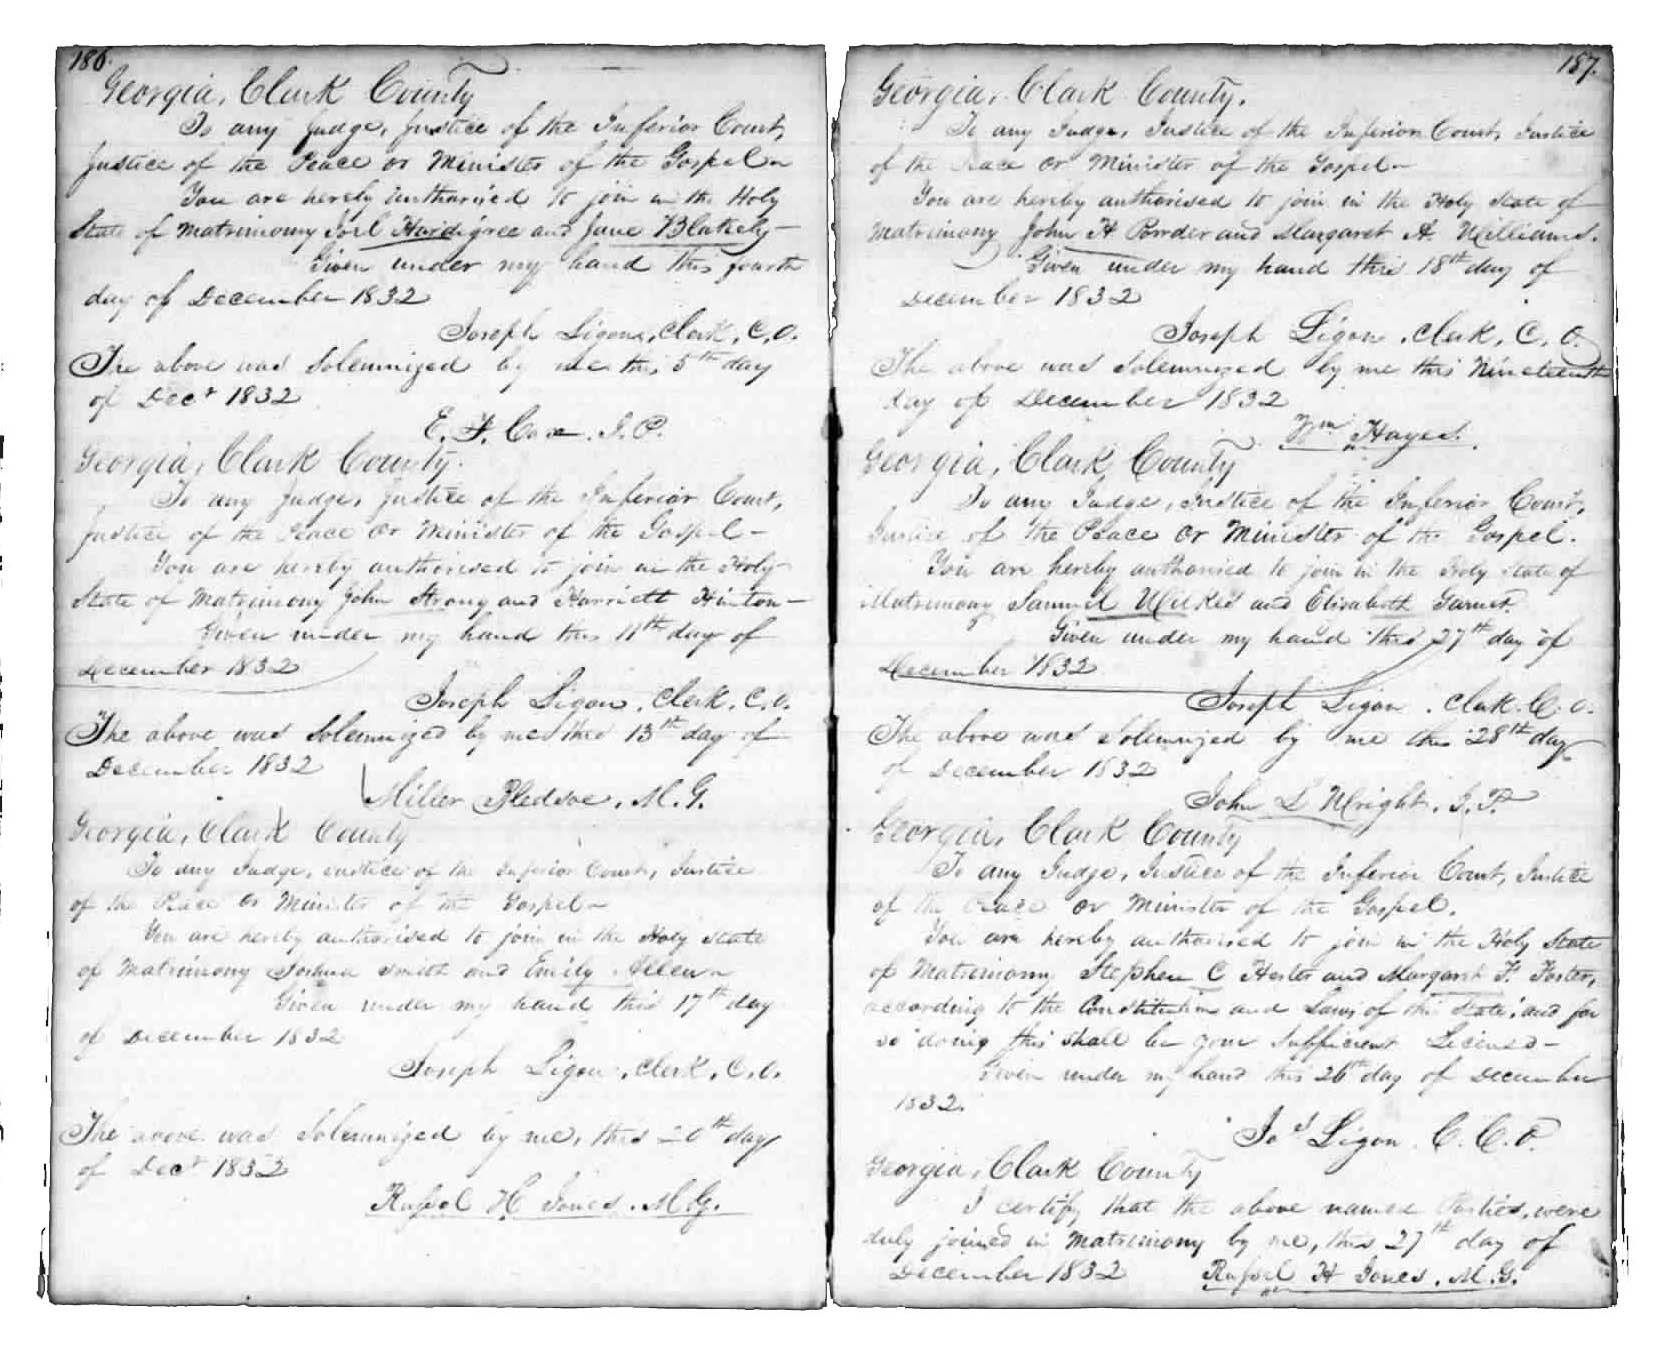 186.
Georgia, Clark County
To any Judge, Justice of the Inferior Court,
Justice of the Peace or Minister of the Gospel—
You are hereby authorised to join in the Holy
State of Matrimony Joel Hardigree and Jane Blakely—
Given under my hand this fourth
day of December 1832
Joseph Ligon, Clerk, C.O.
The above was Solemnized by me this 5th day
of Decr 1832
E. F. Cox. J.P.
Georgia, Clark County.
To any Judge, Justice of the Inferior Court,
Justice of the Peace or Minister of the Gospel—
You are hereby authorised to join in the Holy
State of Matrimony John Strong and Harriett Hinton—
Given under my hand this 11th day of
December 1832
Joseph Ligon, Clerk, C.O.
The above was Solemnized by me this 13th day of
December 1832
Miller Bledsoe, M.G.
Georgia, Clark County
To any Judge, Justice of the Inferior Court, Justice
of the Peace or Minister of the Gospel—
You are hereby authorised to join in the Holy State
of Matrimony Joshua Smith and Emily Allen—
Given under my hand this 17th day
of December 1832
Joseph Ligon, Clerk, C.O.
The above was Solemnized by me, this 20th day
of Decr 1832
H Jones. M.G.
187.
Georgia, Clark County.
To any Judge, Justice of the Inferior Court, Justice
of the Peace or Minister of the Gospel—
You are hereby authorised to join in the Holy State of
Matrimony John H Powder and Margaret A. Williams.
Given under my hand this 18th day of
December 1832
Joseph Ligon, Clerk, C.O.
The above was Solemnized by me this Nineteenth
day of December 1832
Wm Hayes.
Georgia, Clark County
To any Judge, Justice of the Inferior Court,
Justice of the Peace or Minister of the Gospel.
You are hereby authorised to join in the Holy State of
Matrimony Samuel Wilkes and Elisabeth Garner.
Given under my hand this 27th day of
December 1832
Joseph Ligon. Clerk. C.O.
The above was Solemnized by me this 28th day
of December 1832
John L Wright, J.P.
Georgia, Clark County
To any Judge, Justice of the Inferior Court, Justice
of the Peace or Minister of the Gospel.
You are hereby authorised to join in the Holy State
of Matrimony Stephen C Hester and Margaret F. Foster,
according to the Constitution and Laws of this State, and for
so doing this shall be your Sufficient License—
Given under my hand this 26th day of December
1832.
Jos Ligon. C.C.O.
Georgia, Clark County
I certify that the above named Parties, were
duly joined in Matrimony by me, this 27th day of
December 1832
H Jones. M.G.